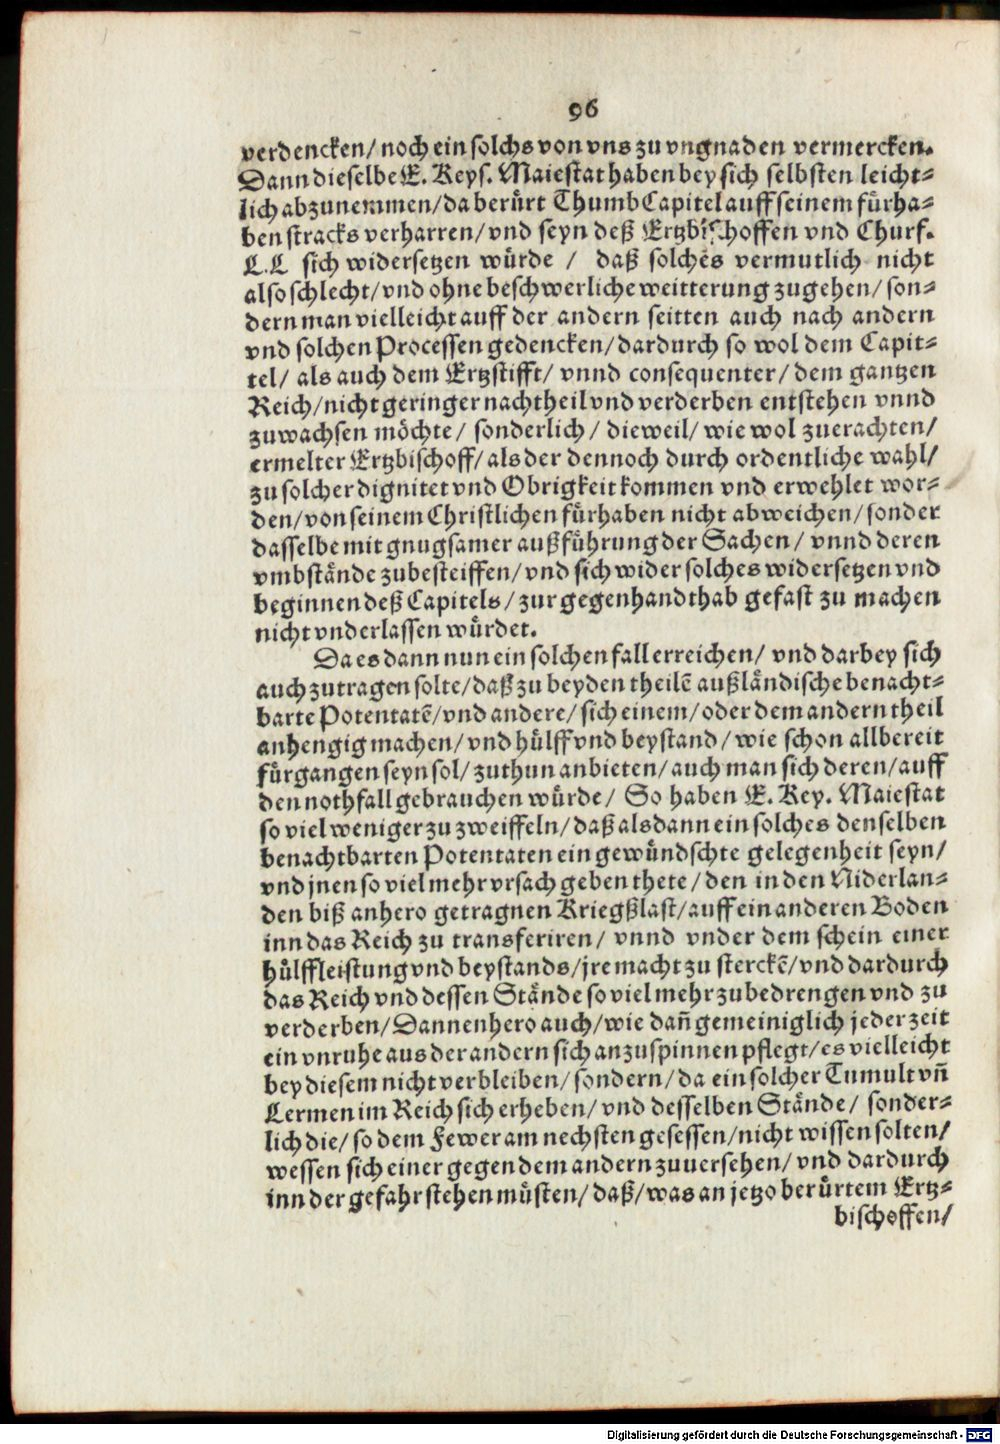 96
verdencken/ noch ein solchs von vns zu vngnaden vermercken.
Dann dieselbe E. Keys. Maiestat haben bey sich selbsten leicht-
lich abzunemmen/ da berürt ThumbCapitel auff seinem fürha-
ben stracks verharren/ vnd seyn deß Ertzbischoffen vnd Churf.
L.L sich widersetzen würde / daß solches vermutlich nicht
also schlecht/ vnd ohne beschwerliche weitterung zugehen/ son-
dern man vielleicht auff der andern seitten auch nach andern
vnd solchen Processen gedencken/ dardurch so wol dem Capit-
tel/ als auch dem Ertzstifft/ vnnd consequenter/ dem gantzen
Reich/ nicht geringer nachtheil vnd verderben entstehen vnnd
zuwachsen möchte/ sonderlich/ dieweil/ wie wol zuerachten/
ermelter Ertzbischoff/ als der dennoch durch ordentliche wahl/
zu solcher dignitet vnd Obrigkeit kommen vnd erwehlet wor-
den/ von seinem Christlichen fürhaben nicht abweichen/ sonder
dasselbe mit gnugsamer außführung der Sachen/ vnnd deren
vmbstände zubesteiffen/ vnd sich wider solches widersetzen vnd
beginnen deß Capitels/ zur gegenhandthab gefast zu machen
nicht vnderlassen würdet.
Da es dann nun ein solchen fall erreichen/ vnd darbey sich
auch zutragen solte/ daß zu beyden theilē außländische benacht-
barte Potentatē/ vnd andere/ sich einem/ oder dem andern theil
anhengig machen/ vnd hülff vnd beystand/ wie schon allbereit
fürgangen seyn sol/ zuthun anbieten/ auch man sich deren/ auff
den nothfall gebrauchen würde/ So haben E. Key. Maiestat
so viel weniger zu zweiffeln/ daß alsdann ein solches denselben
benachtbarten Potentaten ein gewündschte gelegenheit seyn/
vnd jnen so viel mehr vrsach geben thete/ den in den Niderlan-
den biß anhero getragnen Kriegßlast/ auff ein anderen Boden
inn das Reich zu transferiren/ vnnd vnder dem schein einer
hülffleistung vnd beystands/ jre macht zu sterckē/ vnd dardurch
das Reich vnd dessen Stände so viel mehr zubedrengen vnd zu
verderben/ Dannenhero auch/ wie dañ gemeiniglich jeder zeit
ein vnruhe aus der andern sich anzuspinnen pflegt/ es vielleicht
bey diesem nicht verbleiben/ sondern/ da ein solcher Tumult vñ
Lermen im Reich sich erheben/ vnd desselben Stände/ sonder-
lich die/ so dem Fewer am nechsten gesessen/ nicht wissen solten/
wessen sich einer gegen dem andern zuuersehen/ vnd dardurch
inn der gefahr stehen müsten/ daß/ was an jetzo berürtem Ertz-
bischoffen/
Digitalisierung gefördert durch die Deutsche Forschungsgemeinschaft - DFG